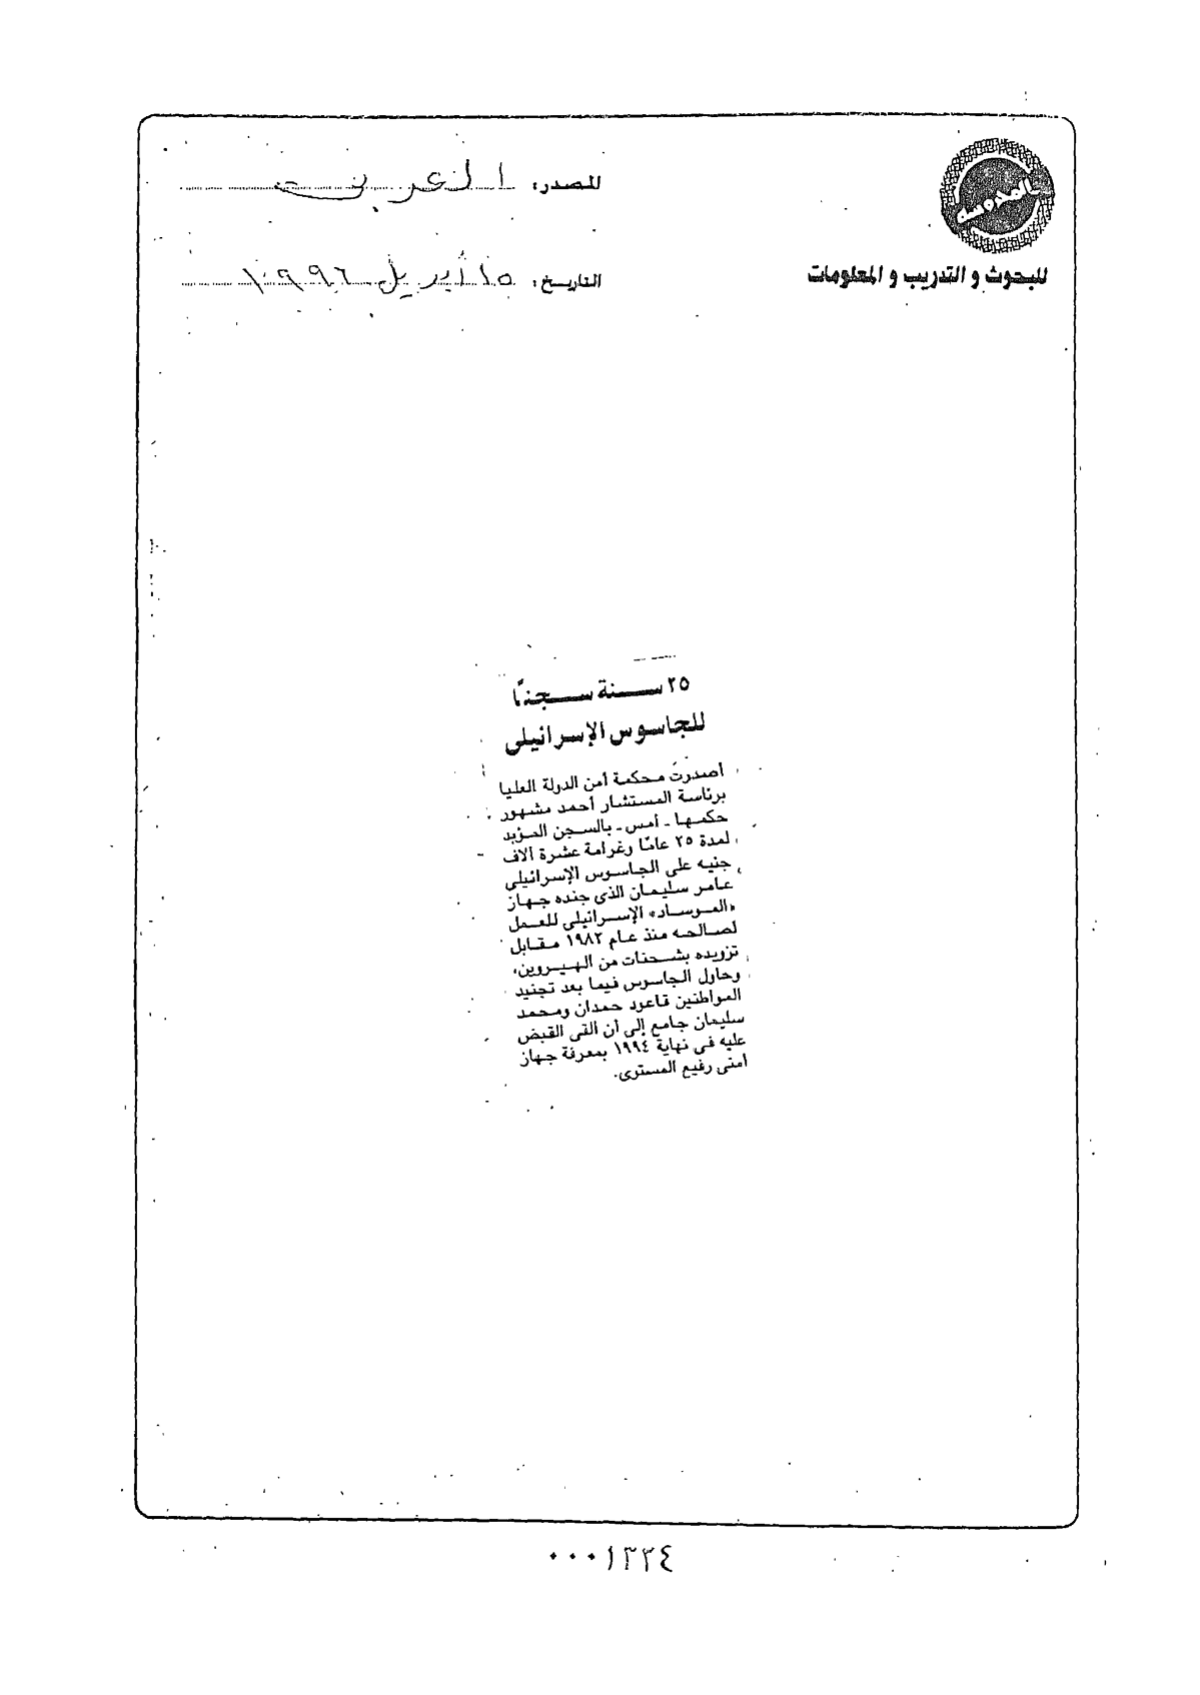 المحروسة
للبحوث و التدريب و المعلومات
المصدر: العربى
التاريخ: ١٥ أبريل ١٩٩٦
٢٥ سنة سجنًا
للجاسوس الإسرائيلى
أصدرت محكمة أمن الدولة العليا
برئاسة المستشار أحمد مشهور
حكمها - أمس - بالسجن المؤبد
لمدة ٢٥ عامًا وغرامة عشرة آلاف
جنيه على الجاسوس الإسرائيلى
عامر سليمان الذى جنده جهاز
«الموساد» الإسرائيلى للعمل
لصالحه منذ عام ١٩٨٢ مقابل
تزويده بشحنات من الهيروين،
وحاول الجاسوس فيما بعد تجنيد
المواطنين قاعود حمدان ومحمد
سليمان جامع إلى أن ألقى القبض
عليه فى نهاية ١٩٩٤ بمعرفة جهاز
أمنى رفيع المستوى.